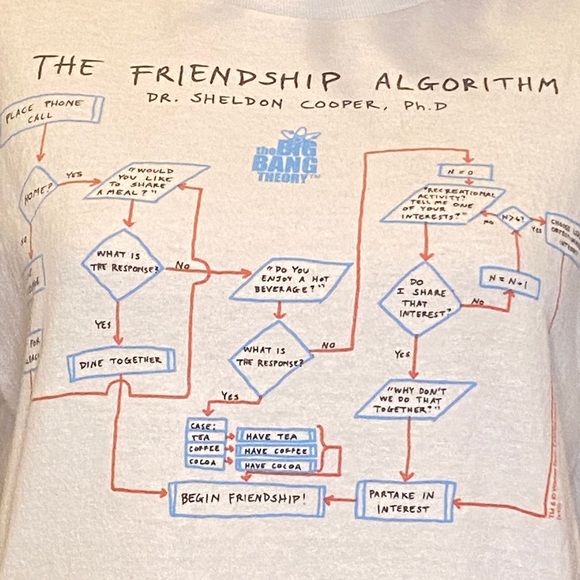 THE FRIENDSHIP ALGORITHM
DR. SHELDON COOPER, Ph.D
PLACE PHONE
CALL
HOME?
YES
"WOULD
YOU LIKE
TO SHARE
A MEAL?"
the BIG
BANG
THEORY™
N=0
"RECREATIONAL
ACTIVITY?
TELL ME ONE
OF YOUR
INTERESTS?"
NO
N>6?
YES
WHAT IS
THE RESPONSE?
NO
"DO YOU
ENJOY A HOT
BEVERAGE?"
DO
I SHARE
THAT
INTEREST?
NO
N=N+1
YES
DINE TOGETHER
WHAT IS
THE RESPONSE?
NO
YES
YES
"WHY DON'T
WE DO THAT
TOGETHER?"
CASE:
TEA
HAVE TEA
COFFEE
HAVE COFFEE
COCOA
HAVE COCOA
BEGIN FRIENDSHIP!
PARTAKE IN
INTEREST